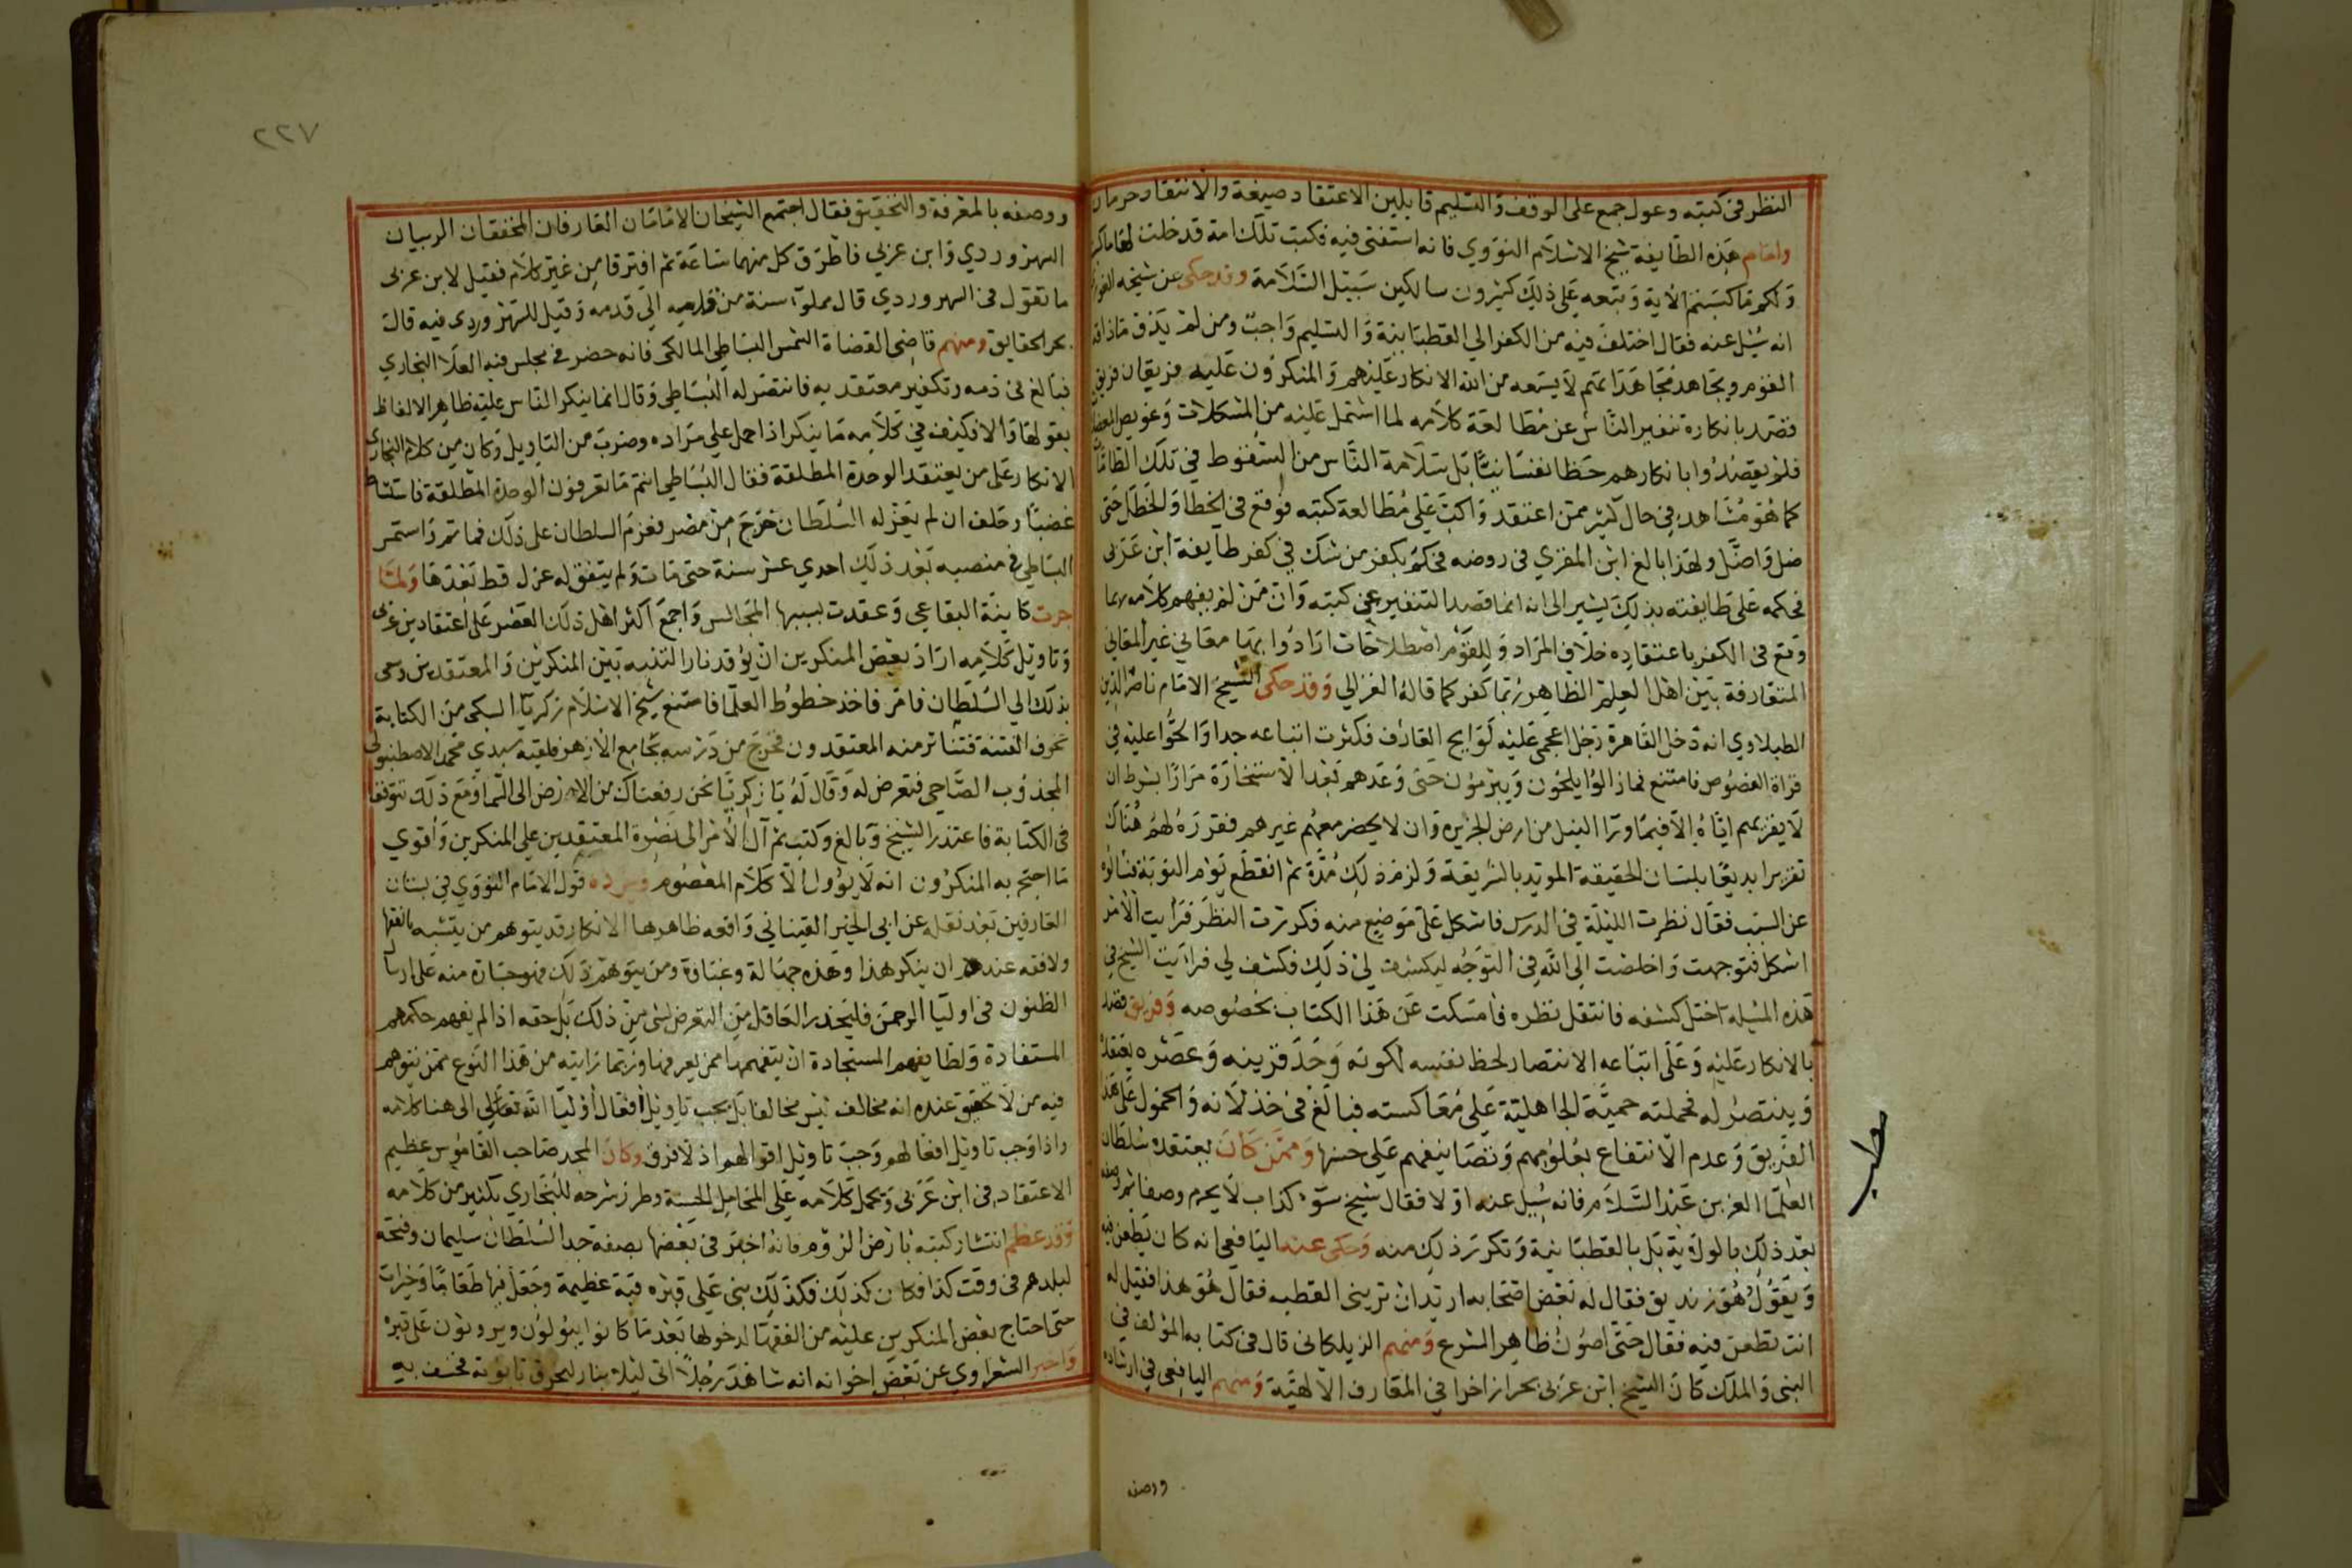 النظر في كتبه وعول جمع على الوقف والتسليم قايلين الاعتقاد صيغة والانتقاد حرمان
وامام هذه الطايفة شيخ الاسلام النووي فانه استفتى فيه فكتب تلك امة قد خلت لها ما كسبت
ولكم ما كسبتم الاية وتبعه على ذلك كثيرون سالكين سبيل السلامة وقد حكى عن شيخه
انه سُئل عنه فقال اختلف فيه من الكفر الى القطبانية والتسليم واجب ومن لم يذق ماذاقه
القوم ويجاهد مجاهداتهم لا يسعه من الله الانكار عليهم والمنكرون عليه فريقان فريق
قصد بانكاره تنفير الناس عن مطالعة كلامه لما اشتمل عليه من المشكلات وعويص
فلم يقصدوا بانكارهم حظا نفسانيا بل سلامة الناس من السقوط في تلك
كما هو مشاهد في حال كثير ممن اعتقد واكب على مطالعة كتبه فوقع في الخطا والخطل حتى
ضل واضل ولهذا بالغ ابن المقري في روضه فحكم بكفر من شك في كفر طايفة ابن عربى
فحكمه على طايفته بذلك يشير الى انه انما قصد التنفير عن كتبه وان من لم يفهم كلامه ربما
وقع في الكفر باعتقاده خلاف المراد وللقوم اصطلاحات ارادوا بها معاني غير المعاني
المتعارفة بين اهل العلم الظاهر ربما كفر كما قاله الغزالي وقد حكى الشيخ الامام ناصر الدين
الطبلاوي انه دخل القاهرة رجل اعجمي عليه لوايح العارف فكثرت اتباعه جدا والحوا عليه في
قراة الفصوص فامتنع فمازالوا يلحون ويبرمون حتى وعدهم بعد الاستخارة مرارا بشرط ان
لا يقريهم اياه الا فيما ورا النيل من ارض الجزيره وان لا يحضر معهم غيرهم فقرره لهم هناك
تقريرا بديعا بلسان الحقيقة المويد بالشريعة ولزم ذلك مدة ثم انقطع يوم النوبة فسالوه
عن السبب فقال نظرت الليلة في الدرس فاشكل على موضع منه فكررت النظر فرايت الامر
اشكل فتوجهت واخلصت الى الله في التوجه ليكشف لي ذلك فكشف لي فرايت الشيخ في
هذه المسيله اختل كشفه فانتقل نظره فامسكت عن هذا الكتاب بخصوصه وفريق قصد
بالانكار عليه وعلى اتباعه الانتصار لحظ نفسه لكونه وجد قرينه وعصره يعتقده
وينتصر له فحملته حمية الجاهلية على معاكسته فبالغ في خذلانه والخمول على هذا
الفريق وعدم الانتفاع بعلومهم وتصانيفهم على حسنها وممن كان يعتقده سلطان
العلما العز بن عبد السلام فانه سُيل عنه اولا فقال شيخ سوء كذاب لا يحرم وصفا ثم وصفه
بعد ذلك بالولاية بل بالقطبانية وتكرر ذلك منه وحكى عنه اليافعى انه كان يطعن فيه
ويقول هو زنديق فقال له بعض اصحابه اريد ان تريني القطب فقال هو هذا فقيل له
انت تطعن فيه فقال حتى اصون ظاهر الشرع ومنهم الزملكانى قال في كتابه المؤلف في
النبى والملك كان الشيخ ابن عربى بحرا زاخرا في المعارف الالهية ومنهم اليافعى في ارشاده
ووصفه
مطلب
٢٢٧
ووصفه بالمعرفة والتحقيق فقال اجتمع الشيخان الامامان العارفان المحققان الربيان
السهروردي وابن عربي فاطرق كل منهما ساعة ثم افترقا من غير كلام فقيل لابن عربى
ما تقول في السهروردي قال مملوء سنة من قرنه الي قدمه وقيل للسهروردى فيه قال
بحر الحقايق ومنهم قاضى القضاة الشمس البساطي المالكى فانه حضر في مجلس فيه العلا البخاري
فبالغ في ذمه وتكفير معتقديه فانتصر له البساطي وقال انما ينكر الناس عليه ظاهر الالفاظ
يقولها والا فكيف في كلامه ما ينكر اذا حمل علي مراده وضرب من التاويل وكان من كلام البخاري
الانكار على من يعتقد الوحدة المطلقة فقال البساطي انتم ما تعرفون الوحدة المطلقة فاستشاط
غضبا وحلف ان لم يعزله السلطان خرج من مصر فعزم السلطان على ذلك فما تم واستمر
البساطي في منصبه بعد ذلك احدي عشر سنة حتى مات ولم يتفق له عزل قط بعدها ولما
جرت كاينة البقاعي وعقدت بسببها المجالس واجمع اكثر اهل ذلك العصر على اعتقاد بن عربى
وتاويل كلامه اراد بعض المنكرين ان يوقد نار الفتنه بين المنكرين والمعتقدين وسعى
بذلك الي السلطان فامر فاخذ خطوط العلما فامتنع شيخ الاسلام زكريا السبكى من الكتابة
خوف الفتنة فتناثر منه المعتقدون فخرج من درسه بجامع الازهر فلقيه سيدي محمد الاصطنبولي
المجذوب الصاحي فتعرض له وقال له يا زكريا نحن رفعناك من الارض الى السما ومع ذلك تتوقف
في الكتابة فاعتذر الشيخ وبالغ وكتب ثم آل الامر الى نصرة المعتقدين على المنكرين واقوي
ما احتج به المنكرون انه لا يوول الا كلام المعصوم ويرده قول الامام النووي في بستان
العارفين بعد نقله عن ابى الخير التيناني واقعه ظاهرها الانكار قد يتوهم من يتشبه بالفقها
ولا فقه عندهم ان ينكر هذا وهذه جهالة وغباوة ومن يتوهم ذلك فهو جسارة منه على ارسال
الظنون في اوليا الرحمن فليحذر العاقل من التعرض لشى من ذلك بل حقه اذا لم يفهم حكمهم
المستفادة ولطايفهم المستجادة ان يتفهمها ممن يعرفها وربما رايته من هذا النوع ممن يتوهم
فيه من لا تحقيق عنده انه مخالف ليس مخالفا بل يجب تاويل افعال اوليا الله تعالى الى هنا كلامه
واذا وجب تاويل افعالهم وجب تاويل اقوالهم اذ لا فرق وكان المجد صاحب القاموس عظيم
الاعتقاد في ابن عربى ويحمل كلامه على المحامل الحسنة وطرز شرحه للبخاري بكثير من كلامه
وقد عظم انتشار كتبه بارض الروم فانه اخبر في بعضها بصفة جد السلطان سليمان وفتحه
لبلدهم في وقت كذا فكان كذلك فكذلك بنى على قبره قبة عظيمة وجعل فيها طعاما وخيرات
حتى احتاج بعض المنكرين عليه من الفقها لدخولها بعد ما كانوا يبولون ويروثون على قبره
واخبر الشعراوي عن بعض اخوانه انه شاهد رجلا اتى ليلا بنار ليحرق تابوته فخسف به